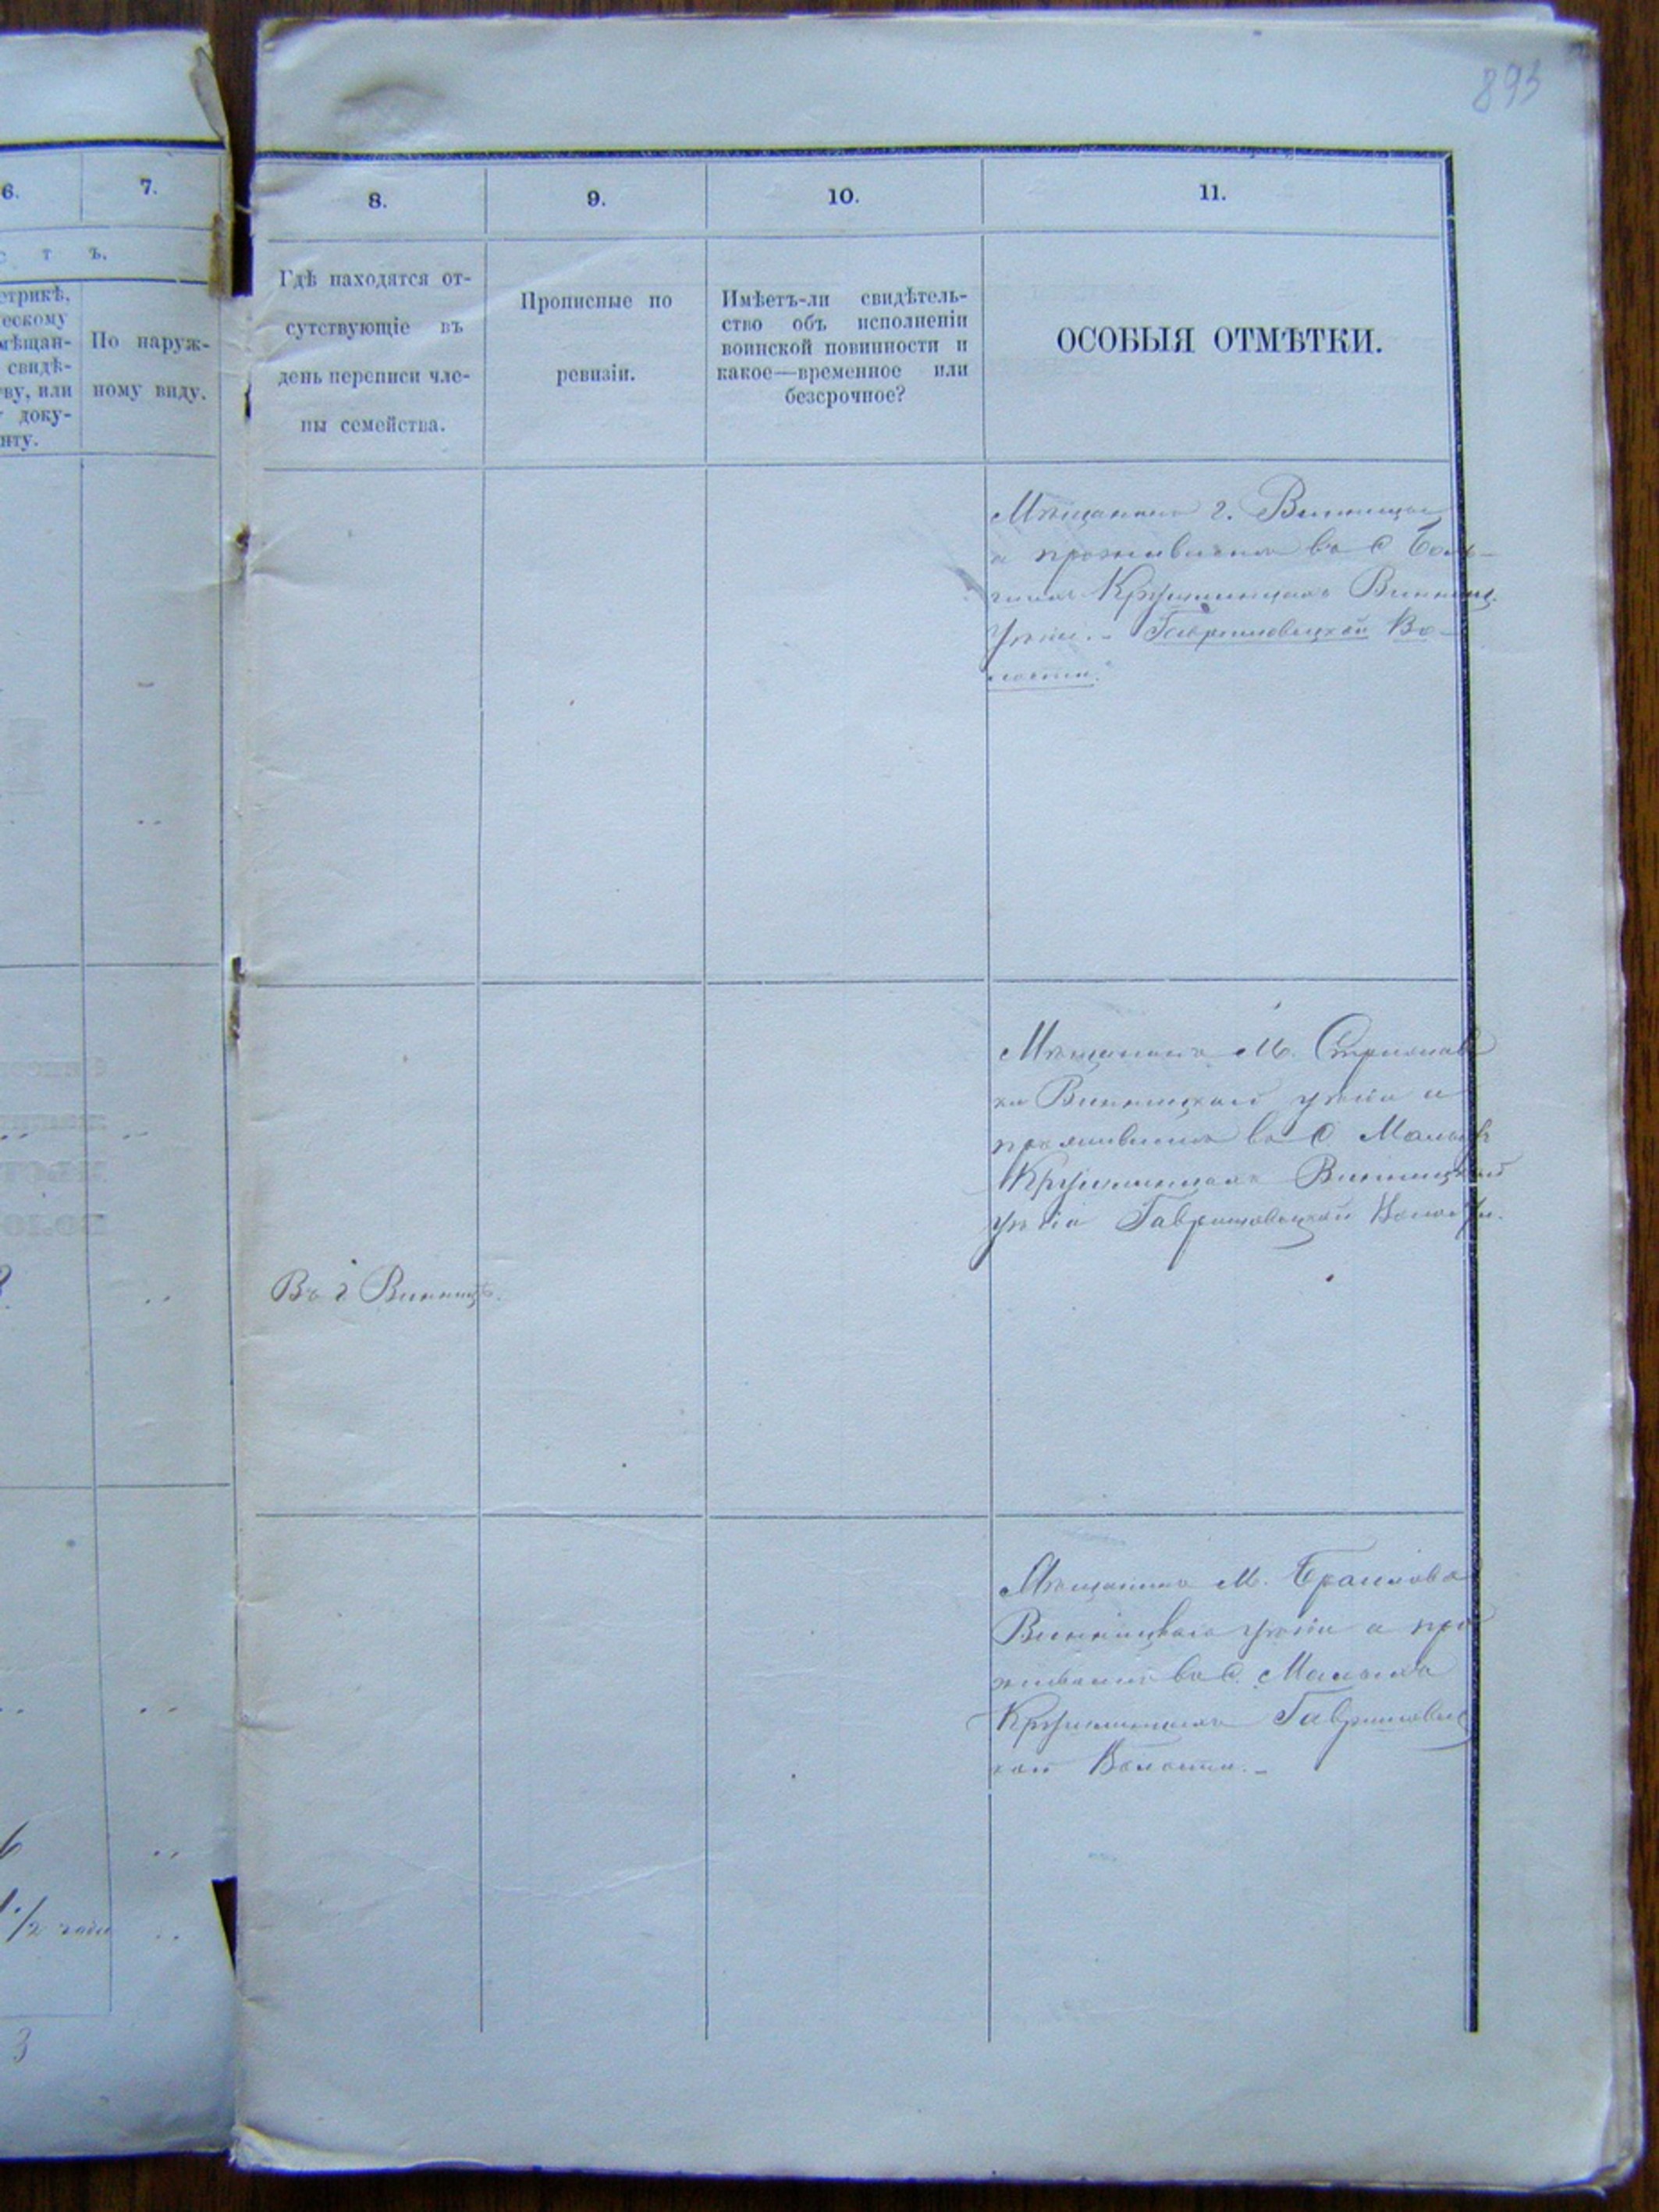 893
6.
7.
8.
9.
10.
11.
с т ъ.
етрикѣ,
ескому
мѣщан-
свидѣ-
ву, или
доку-
нту.
По наруж-
ному виду.
Гдѣ находятся от-
сутствующіе въ
день переписи чле-
ны семейства.
Прописные по
ревизіи.
Имѣетъ-ли свидѣтель-
ство объ исполненіи
воинской повинности и
какое—временное или
безсрочное?
ОСОБЫЯ ОТМѢТКИ.
Мѣщанинъ г. Винницы
а проживаетъ въ С Боль-
Крушлинцахъ Винниц.
Уѣзда. - Гавришовецкой Во-
лости.
Мѣщанинъ М. Стрижав
ки Винницкаго уѣзда а
проживаетъ въ С. Малыхъ
Крушлинцахъ Винницкаго
уѣзда Гавришовецкой Волости.
Въ г Винницѣ.
Мѣщанинъ М. Браилова
Винницкаго уѣзда а про
живаетъ въ С. Малыхъ
Крушлинцахъ Гавришовец
кой Волости. -
1/2 года
3